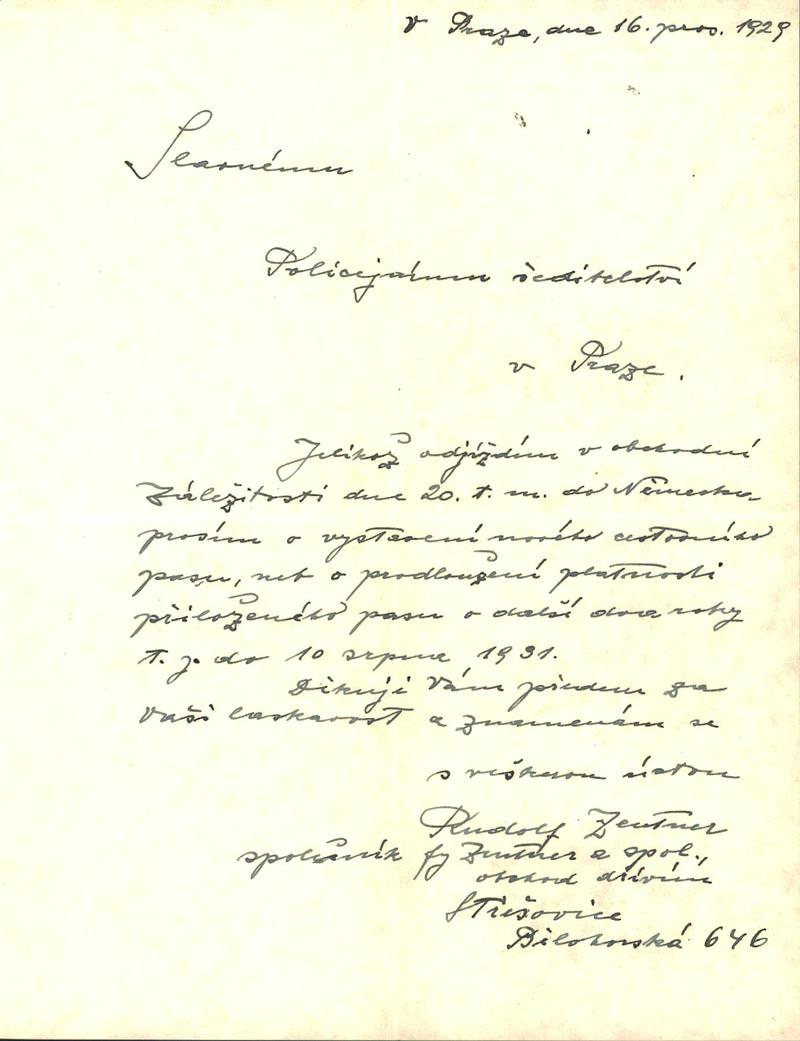 v Praze, dne 16. pros. 1929
Slavnému
Policejnímu ředitelství
v Praze.
Jelikož odjíždím v obchodní
záležitosti dne 20. t. m. do Německa
prosím o vystavení nového cestovního
pasu, neb o prodloužení platnosti
přiloženého pasu o další dva roky
t. j. do 10 srpna 1931.
Děkuji Vám předem za
Vaši laskavost a znamenám se
s veškerou úctou
Rudolf Zentner
společník fy Zentner a spol.,
obchod dřívím
Střešovice
Bělohorská 646